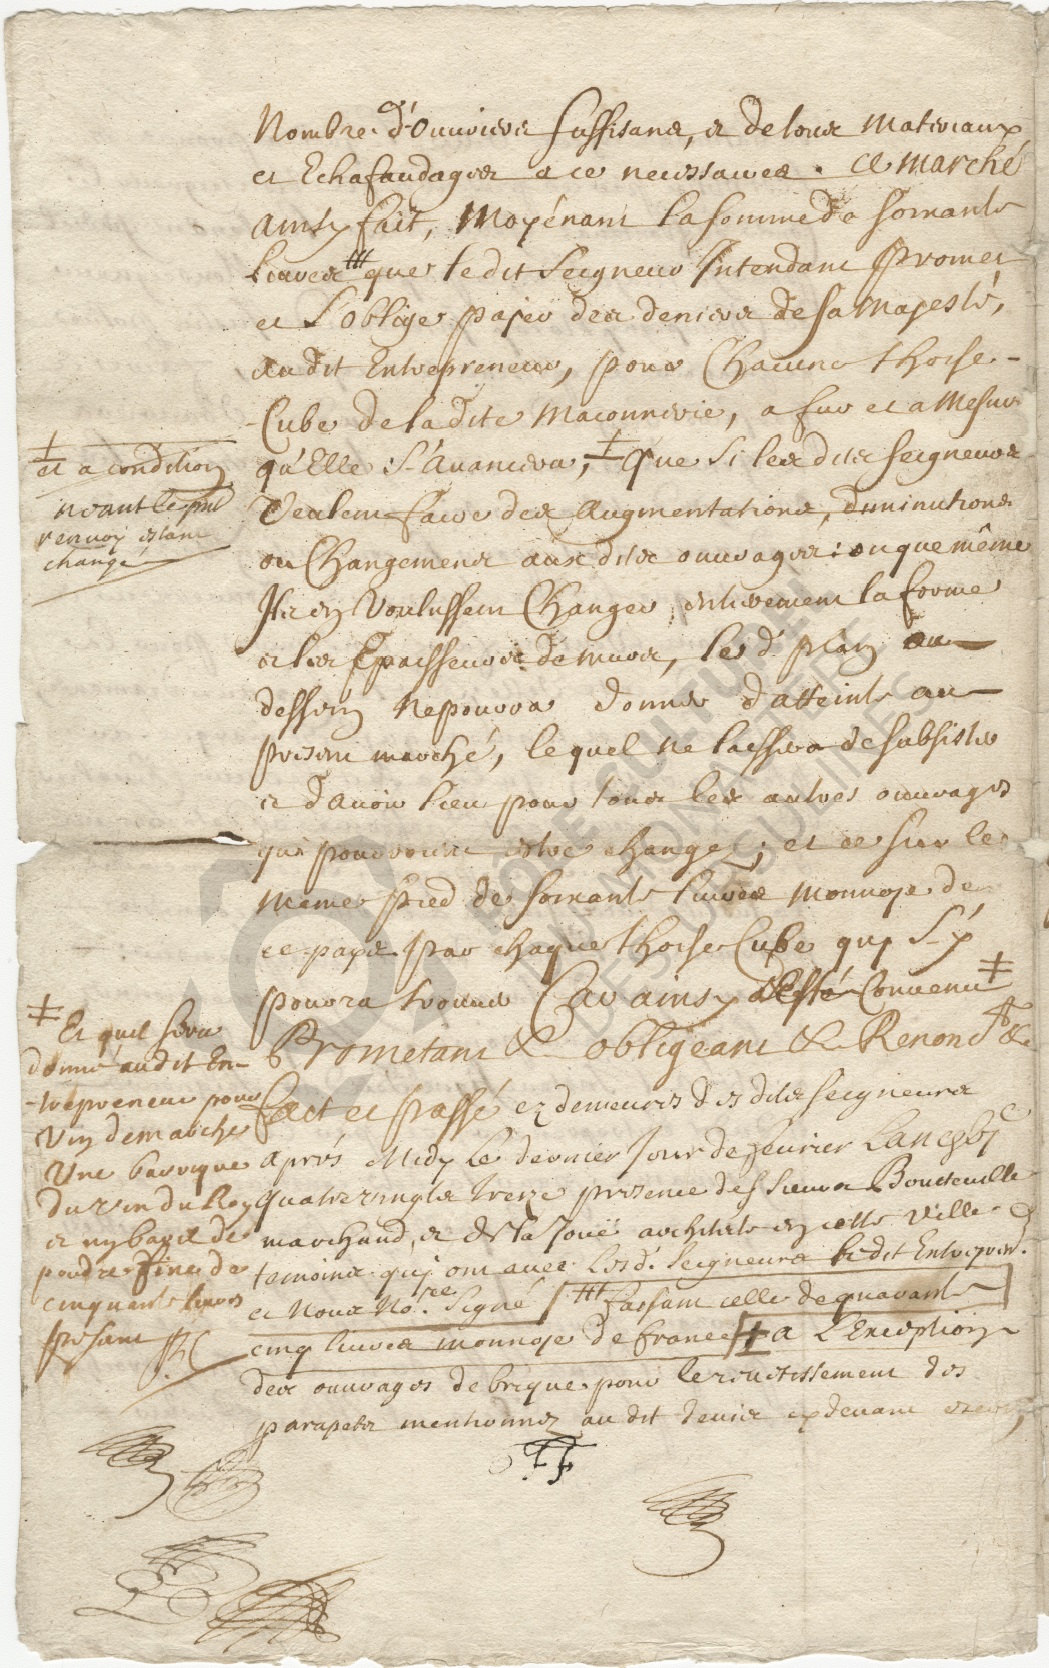 Nombre d'Ouuriers suffisans, et de tous Materiaux
et Echafaudages a ce necessaires. Ce marché
ainsy fait, Moyénant la somme de soixante
liures ttt que ledit Seigneur Intendant Promet
et S'oblige payer des deniers de sa Majesté,
audit Entrepreneur, pour Chacune thoise
Cube de ladite Maconnerie, a fur et a Mesure
qu'Elle S'auancera, ‡ Que Si lesdits seigneurs
Veulent faire des Augmentations, diminutions
ou Changemens auxdits ouurages; ou que même
Ils en Voulussent Changer entierement la forme
et les Epaisseurs de murs, les d. plan ou
dessein Ne pourra donner d'atteinte au
present marché, lequel ne laissera de subsister
et d'auoir lieu pour tous les autres ouurages
qui pourroient estre changés; et ce sur le
même Pied de soixante liures monnoye de
ce paÿs par chaque thoise Cube quy S'y
pourra trouuer Car ainsy a Esté Conuenu ‡
Prometant &c obligeant &c Renonçt &c
Fait et Passé ez demeures desdits seigneurs
aprés Midy le dernier Jour de feurier Lan gbjc
quatreuingts treize presence des sieurs Bouteuille
marchand, et de la Joüe architecte en cette Ville
temoins quj ont auec lesd. Seigneurs ledit Entrepren.r
et Nous No.re Signé ttt faisant celle de quarante
cinq liures monnoye de france ‡ a L'Exception
des ouurages de brique pour le reuetissement des
parapets mentionnez audit deuis cy deuant
‡
et a condition
neant le pnt
renuoy estant
changé
‡ Et quil sera
donné audit En-
-trepreneur pour
Vin de marché
Une barrique
du vin du Roy
et un baril de
poudre fine de
cinquante liures
pesant